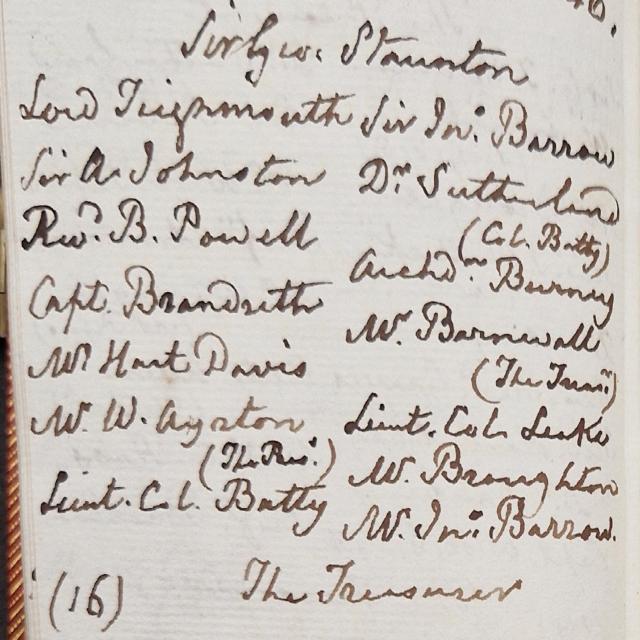 46.
Sir Geo: Staunton
Lord Teignmouth Sir Jno. Barrow
Sir A. Johnston Dr. Sutherland
Revd. B. Powell (Col. Batty)
Archdn. Burney
Capt. Brandreth Mr. Barnewall
Mr Hart Davis (The Treasr.)
Mr. W. Ayrton Lieut. Col. Leake
(The Rev.) Mr. Broughton
Lieut. Col. Batty Mr. Jno. Barrow.
(16) The Treasurer